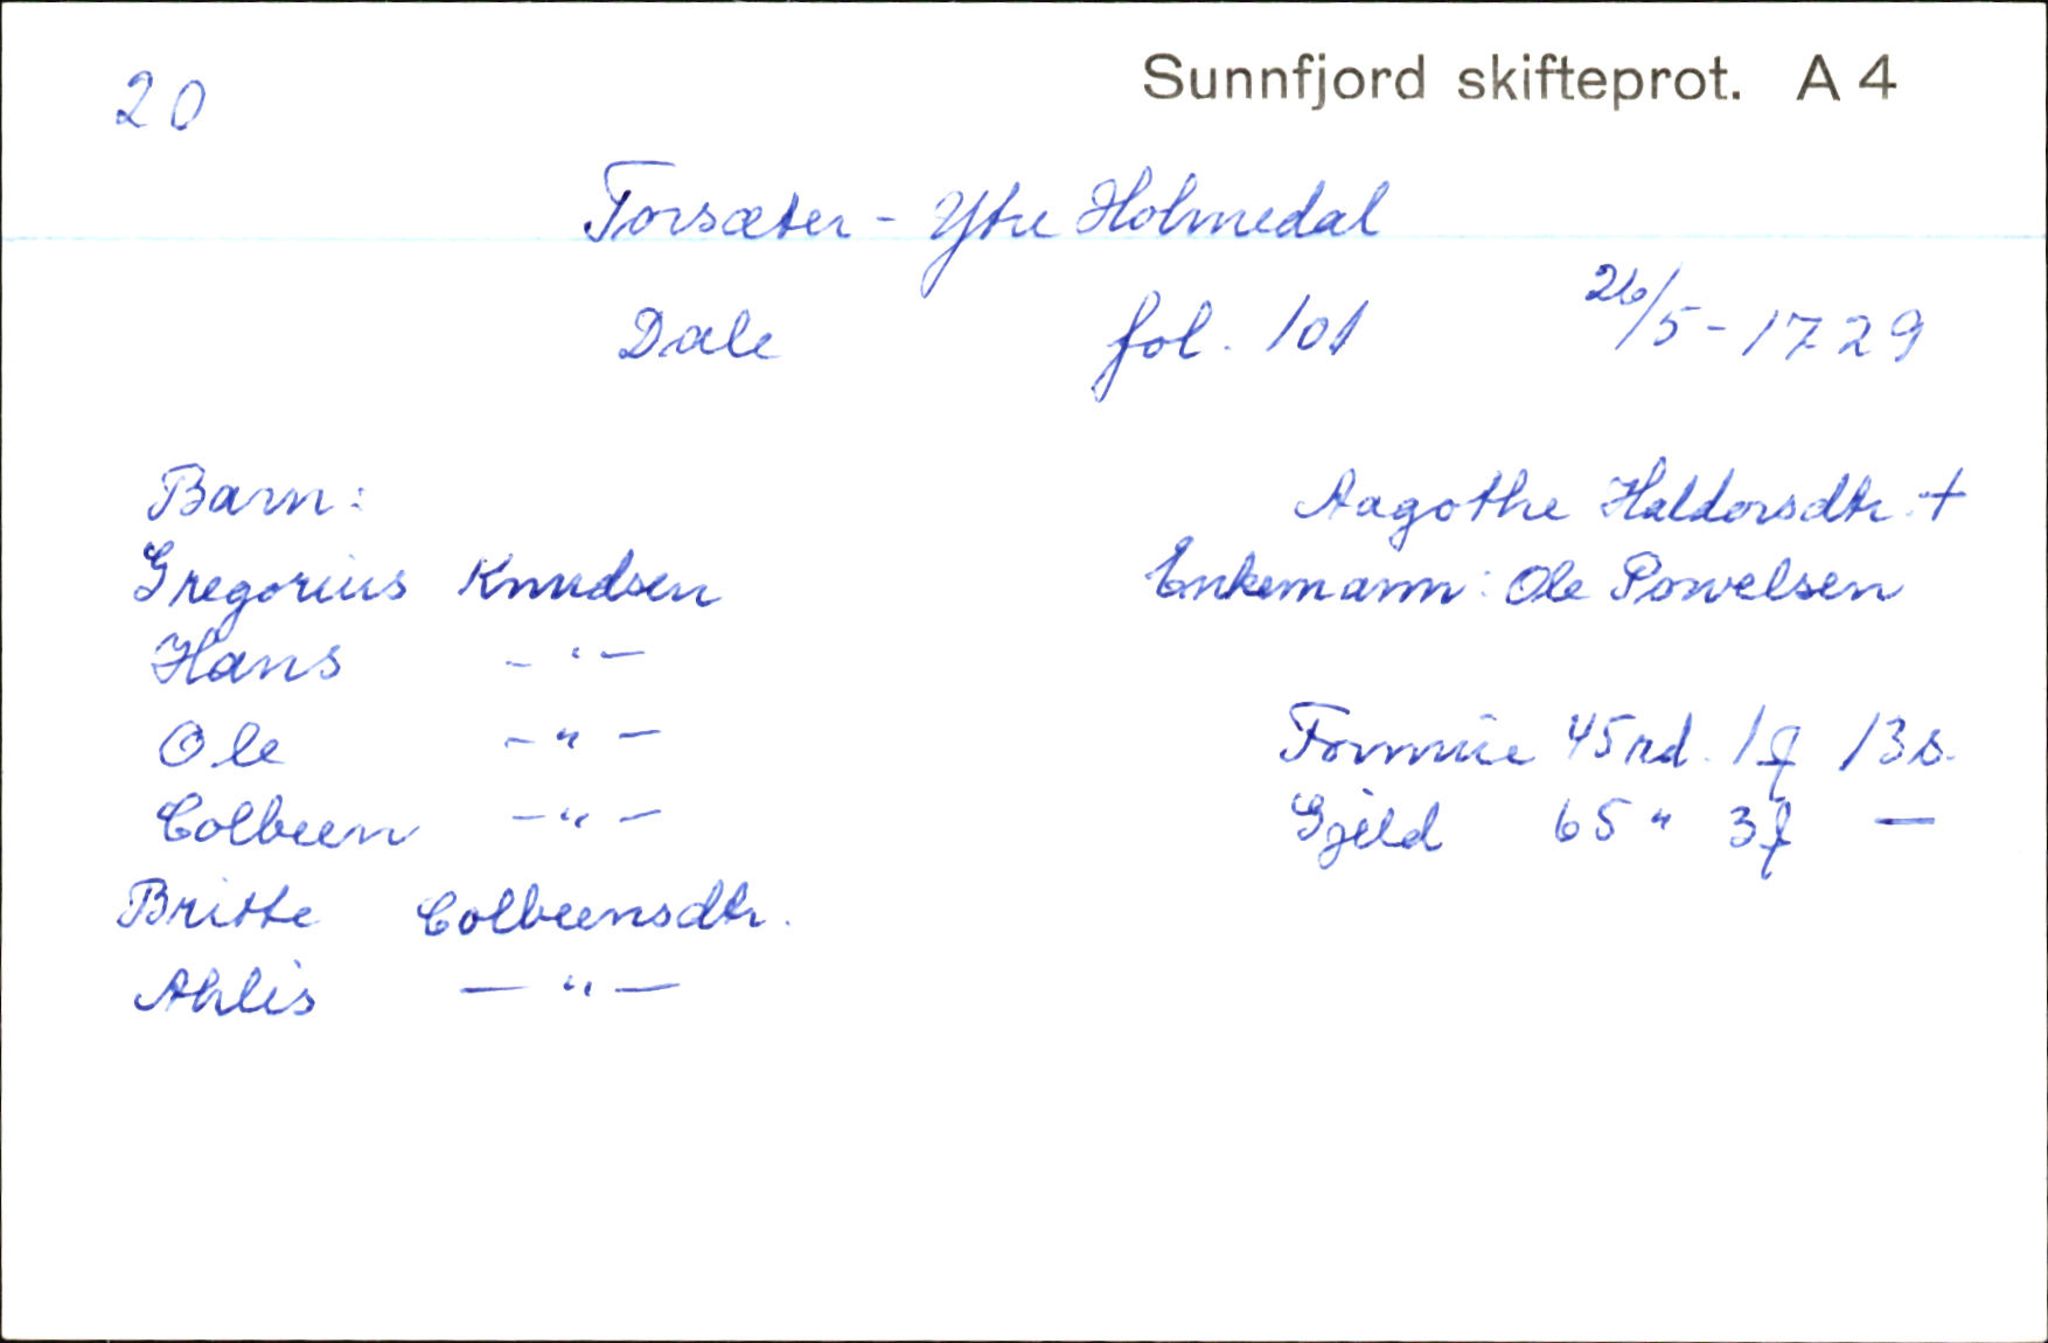 20
Sunnfjord skifteprot. A 4
Torsæter - Ytre Holmedal
Dale fol. 101 26/5-1729
Barn:
Aagothe Haldorsdtr. +
Gregorius Knudsen
Enkemann: Ole Powelsen
Hans - " -
Ole - " -
Formue 45 rd. 1 13 s.
Colbeen - " -
Gjeld 65 " 3 -
Britte Colbeensdtr.
Ahlis - " -